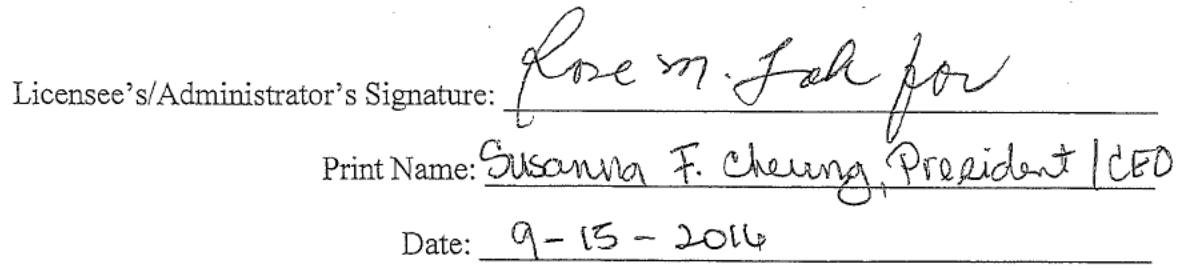 Licensee's/Administrator's Signature: Rose M. Fak for
Print Name: Susanna F. Cheung, President / CEO
Date: 9-15-2016